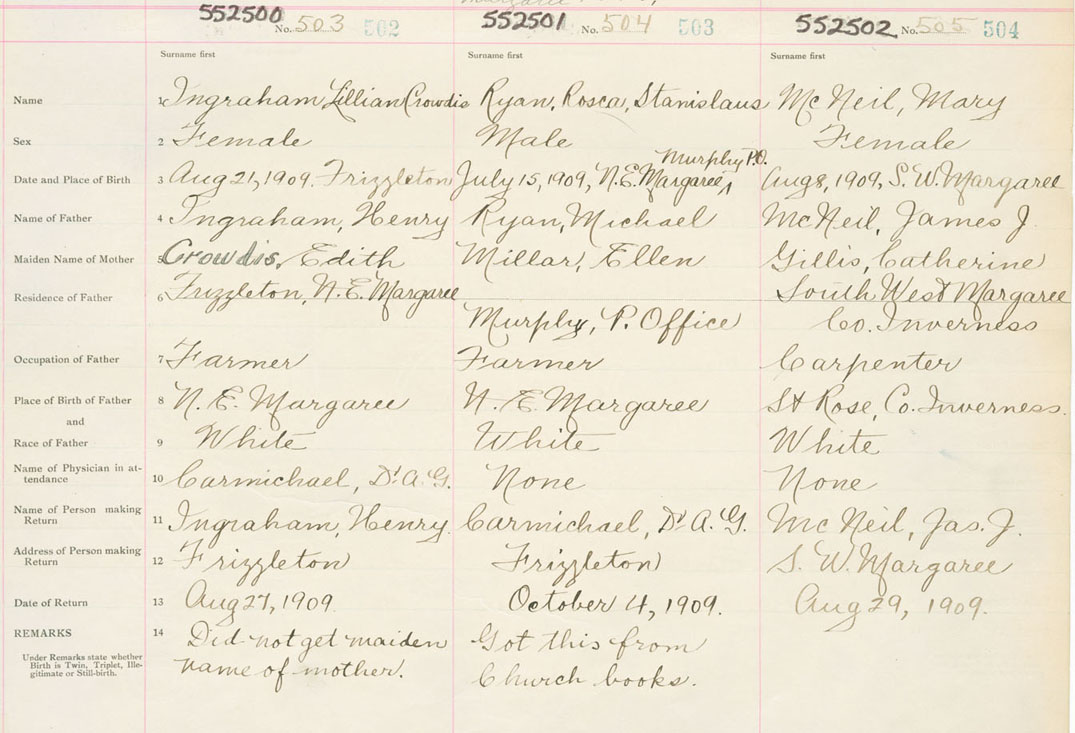 552500 No. 503 502 552501 No. 504 503 552502 No. 505 504
Surname first Surname first Surname first
Name 1 Ingraham, Lillian Crowdis Ryan, Rosca, Stanislaus McNeil, Mary
Sex 2 Female Male Female
Murphy P.O.
Date and Place of Birth 3 Aug 21, 1909. Frizzleton July 15, 1909, N.E. Margaree, Aug 8, 1909, S.W. Margaree
Name of Father 4 Ingraham, Henry Ryan, Michael McNeil, James J.
Maiden Name of Mother 5 Crowdis, Edith Millar, Ellen Gillis, Catherine
Residence of Father 6 Frizzleton, N.E. Margaree South West Margaree
Murphy, P. Office Co. Inverness
Occupation of Father 7 Farmer Farmer Carpenter
Place of Birth of Father 8 N. E. Margaree N. E. Margaree St Rose, Co. Inverness.
and
Race of Father 9 White White White
Name of Physician in at-
tendance 10 Carmichael, Dr. A. G. None None
Name of Person making
Return 11 Ingraham, Henry. Carmichael, Dr A. G. McNeil, Jas. J.
Address of Person making
Return 12 Frizzleton Frizzleton S. W. Margaree
Date of Return 13 Aug 27, 1909 October 4, 1909. Aug 29, 1909.
REMARKS 14 Did not get maiden Got this from
Under Remarks state whether
Birth is Twin, Triplet, Ille-
gitimate or Still-birth.
name of mother. Church books.